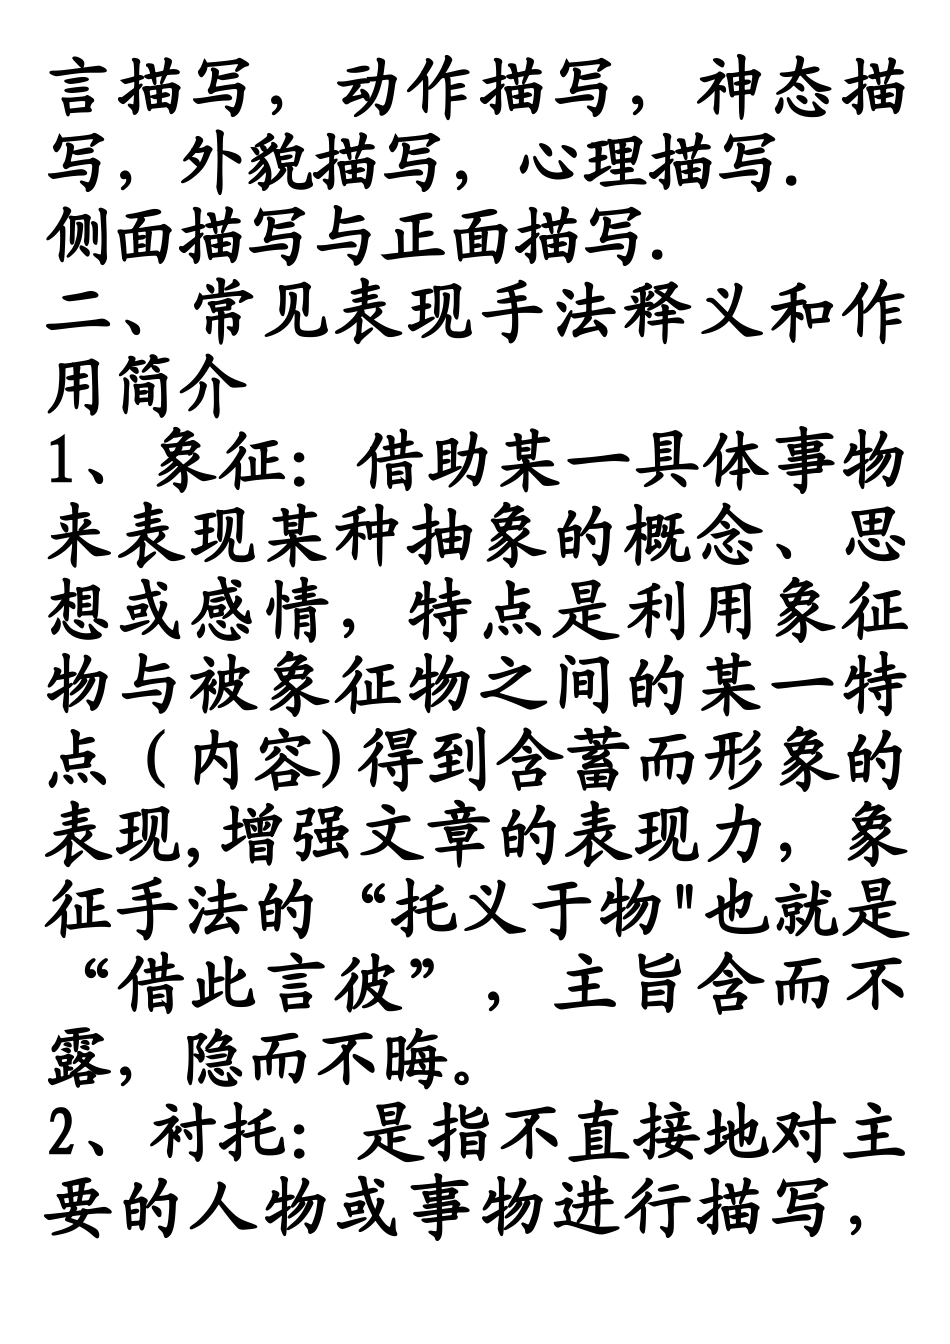 言描写，动作描写，神态描
写，外貌描写，心理描写.
侧面描写与正面描写.
二、常见表现手法释义和作
用简介
1、象征：借助某一具体事物
来表现某种抽象的概念、思
想或感情，特点是利用象征
物与被象征物之间的某一特
点（内容)得到含蓄而形象的
表现,增强文章的表现力，象
征手法的“托义于物"也就是
“借此言彼”，主旨含而不
露，隐而不晦。
2、衬托：是指不直接地对主
要的人物或事物进行描写，